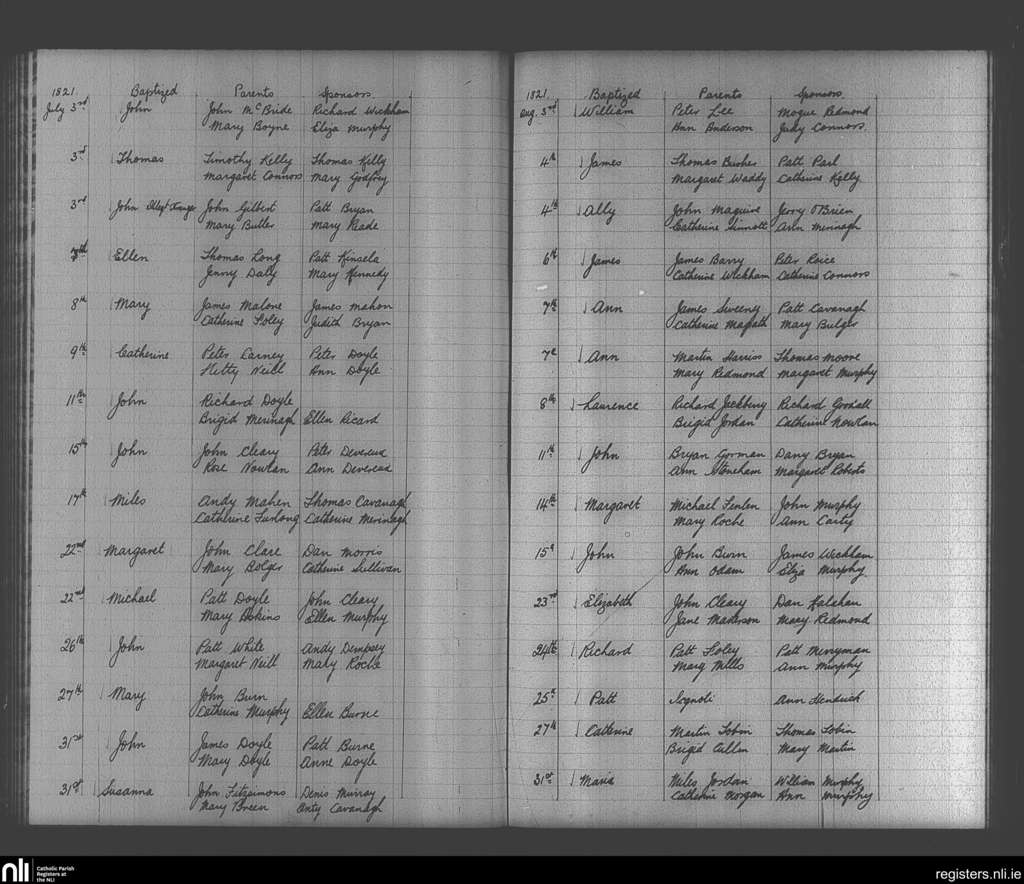 1821. Baptized Parents Sponsors.
July 3rd John John McBride Richard Wickham
Mary Boyne Eliza Murphy
3rd Thomas Timothy Kelly Thomas Kelly
Margaret Connors Mary Godfrey
3rd John John Gilbert Patt Bryan
Mary Butler Mary Reade
Ellen Thomas Long Patt Kinsela
Jenny Daly Mary Kennedy
8th Mary James Malone James Mahon
Catherine Foley Judith Bryan
9th Catherine Peter Carney Peter Doyle
Hetty Neill Ann Doyle
11th John Richard Doyle
Brigid Merinagh Ellen Ricard
15th John John Cleary Peter Devereux
Rose Nowlan Ann Devereux
17th Miles Andy Mahen Thomas Cavanagh
Catherine Furlong Catherine Merinagh
22nd Margaret John Clare Dan Morris
Mary Bolger Catherine Sullivan
22nd Michael Patt Doyle John Cleary
Mary Ellen Murphy
26th John Patt White Andy Dempsey
Margaret Neill Mary Roche
27th Mary John Burn
Catherine Murphy Ellen Burne
31st John James Doyle Patt Burne
Mary Doyle Anne Doyle
31st Susanna John Fitzsimons Denis Murray
Mary Breen Anty Cavanagh
1821. Baptized Parents Sponsors.
Aug. 3rd William Peter Lee Mogue Redmond
Ann Anderson Judy Connors.
4th James Thomas Busher Patt Parl
Margaret Waddy Catherine Kelly
4th Ally John Maguire Jerry O'Brien
Catherine Sinnott Ann Merinagh
6th James James Barry Peter Roice
Catherine Wickham Catherine Connors
7th Ann James Sweeney Patt Cavanagh
Catherine Magrath Mary Bulger
7th Ann Martin Harriss Thomas Moore
Mary Redmond Margaret Murphy
8th Laurence Richard Richard Goodall
Brigid Jordan Catherine Nowlan
11th John Bryan Gorman Dany Bryan
Ann Stoneham Margaret Roberts
14th Margaret Michael Fenlen John Murphy
Mary Roche Ann Carty
15th John John Burn James Wickham
Ann Odam Eliza Murphy
23rd Elizabeth John Cleary Dan Kalahan
Jane Masterson Mary Redmond
24th Richard Patt Foley Patt Merryman
Marg Mills Ann Murphy
25th Patt Ignoti Ann Hendrick
27th Catherine Martin Tobin Thomas Tobin
Brigid Cullen Mary Martin
31st Maria Miles Jordan William Murphy
Catherine Horgan Ann Murphy
nli Catholic Parish
Registers at
the NLI
registers.nli.ie